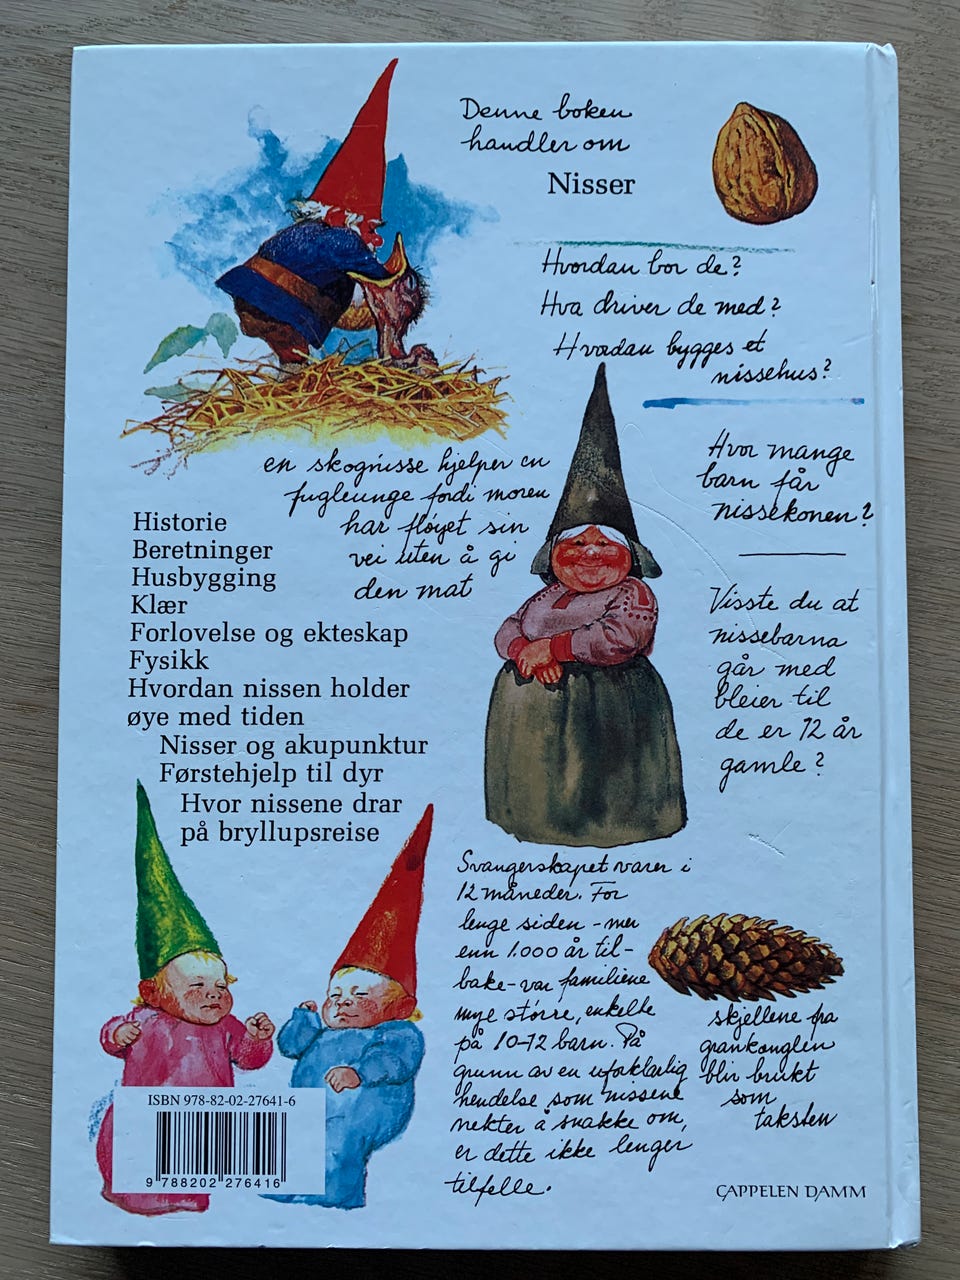 Denne boken
handler om
Nisser
Hvordan bor de?
Hva driver de med?
Hvordan bygges et
nissehus?
en skognisse hjelper en
fugleunge fordi moren
har fløyet sin
vei uten å gi
den mat
Hvor mange
barn får
nissekonen?
Historie
Beretninger
Husbygging
Klær
Forlovelse og ekteskap
Fysikk
Hvordan nissen holder
øye med tiden
Nisser og akupunktur
Førstehjelp til dyr
Hvor nissene drar
på bryllupsreise
Visste du at
nissebarna
går med
bleier til
de er 12 år
gamle?
Svangerskapet varer i
12 måneder. For
lenge siden - mer
enn 1.000 år til-
bake - var familiene
mye større, enkelte
på 10-12 barn. På
grunn av en uforklarlig
hendelse som nissene
nekter å snakke om,
er dette ikke lenger
tilfelle.
skjellene fra
grankonglen
blir brukt
som
taksten
ISBN 978-82-02-27641-6
9 788202 276416
CAPPELEN DAMM